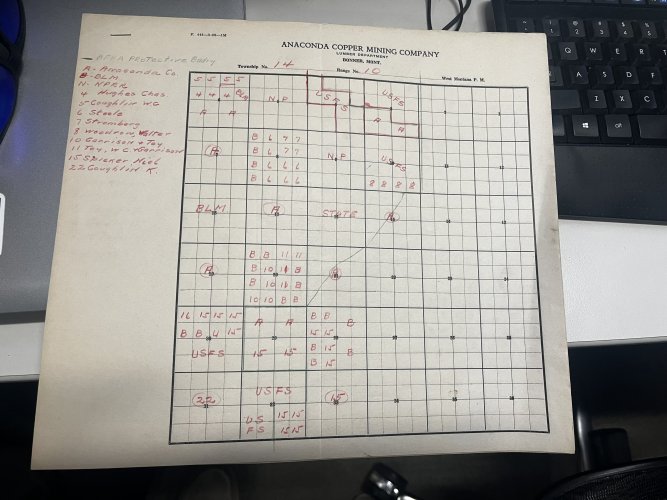 ANACONDA COPPER MINING COMPANY
LUMBER DEPARTMENT
BONNER, MONT.
Township No. 14
Range No. 10
West Montana P. M.
A - Anaconda Co.
B - BLM
N - NPRR
4 Hughes Chas
5 Coughlin WG
6 Steele
7 Stromberg
8 Woodrow, Walter
10 Garrison & Toy
11 Toy, W C & Garrison
15 Spieker
22 Coughlin K.
5 5 5 5
4 4 4 BLM
A A
N.P.
USFS
USFS
A A
B 6 7 7
B 6 7 7
B 6 6 6
B 6 6 6
N.P.
USFS
8 8 8 8
BLM
STATE
B B 11 11
B 10 11 B
B 10 11 B
10 10 B B
16 15 15 15
B B 4 15
USFS
A A
15 15
B B
B
15 15
B 15 B
B 15
22
USFS
US 15 15
FS 15 15